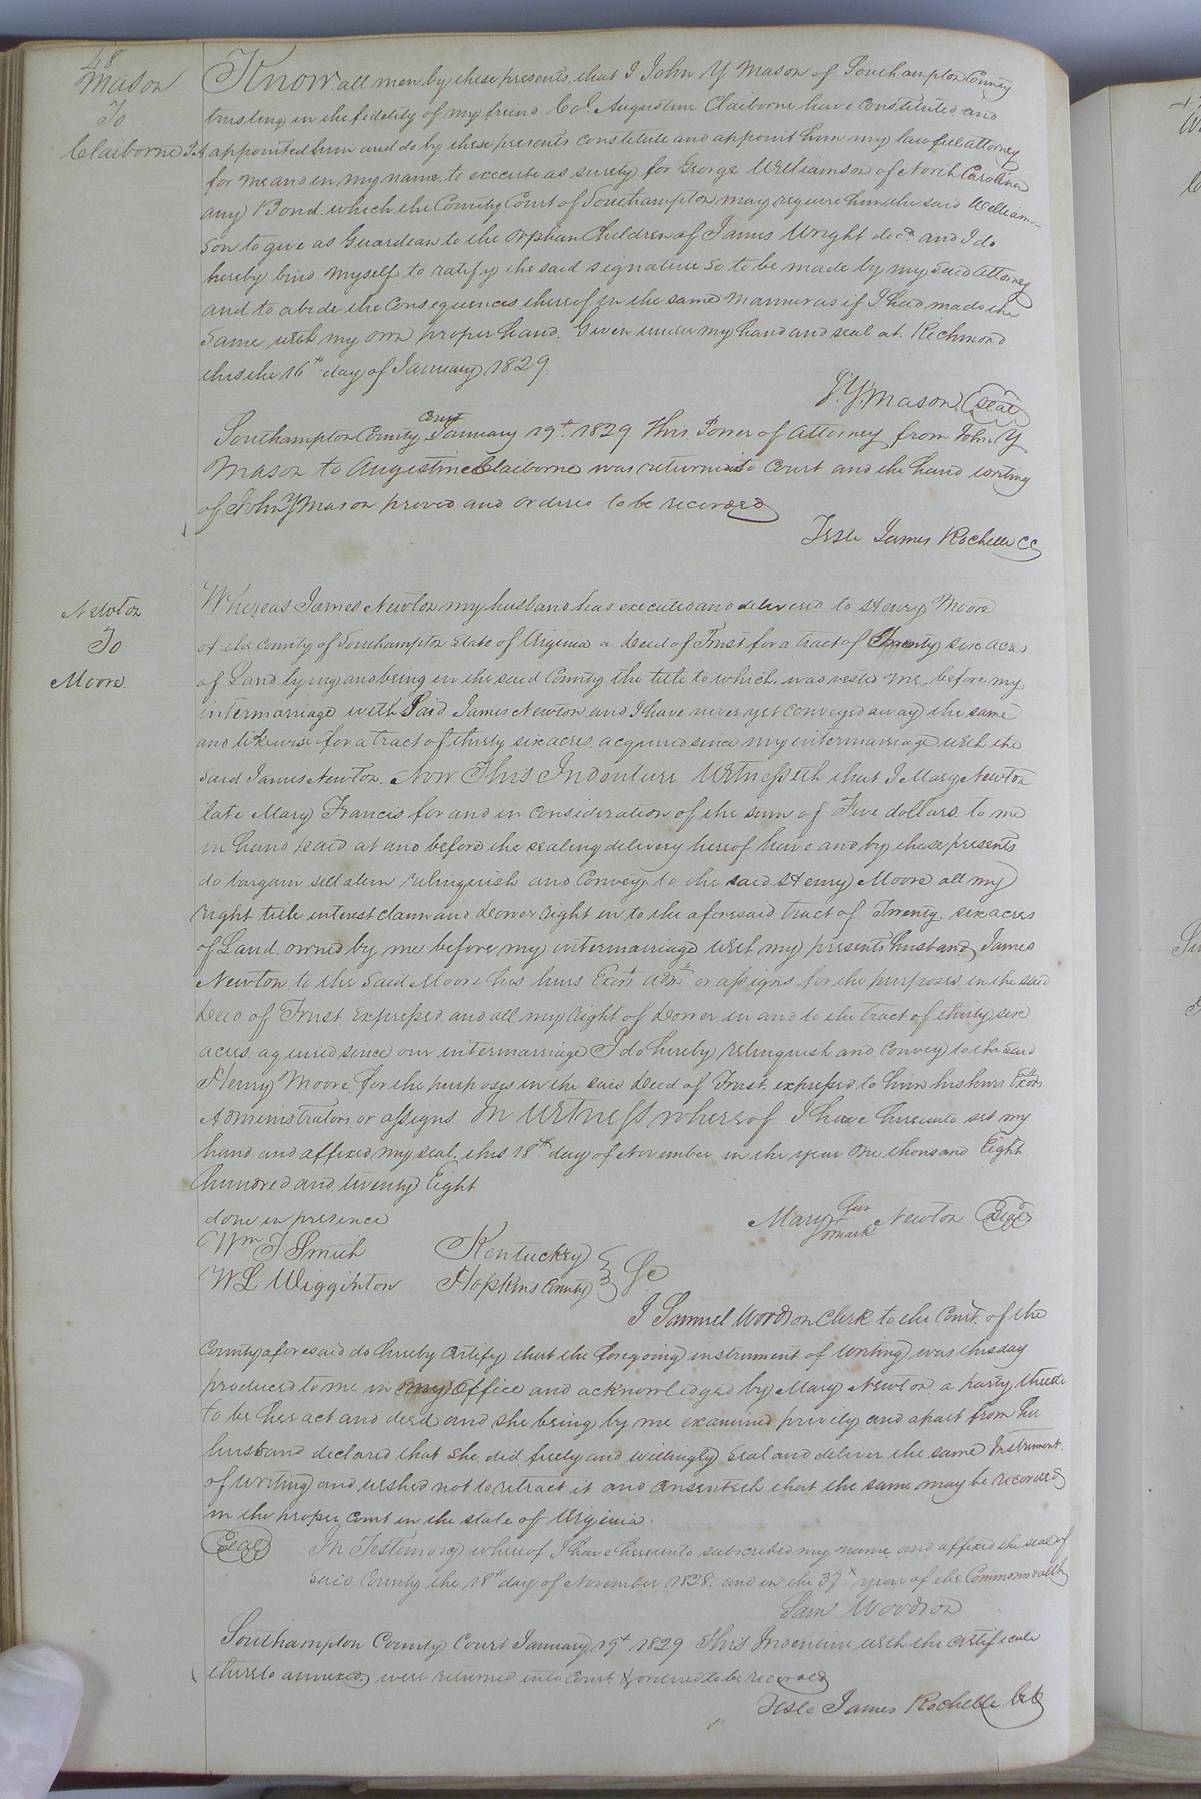 48
Mason
To
Claiborne P.A
Know all men by these presents, that I John Y Mason of Southampton County
trusting in the fidelity of my friend Col Augustine Claiborne have constituted and
appointed him and do by these presents constitute and appoint him my lawful attorney
for me and in my name to execute as surety for George Williamson of North Carolina
any Bond which the County Court of Southampton may require him the said William-
son to give as Guardian to the orphan Children of James Wright decd and I do
hereby bind myself to ratify the said signature so to be made by my said attorney
and to abide the Consequences thereof in the same manner as if I had made the
same with my own proper hand. Given under my hand and seal at Richmond
this the 16th day of January 1829.
J. Y. Mason (seal)
Southampton County Court January 19th 1829 This Power of Attorney from John Y
Mason to Augustine Claiborne was returned to Court and the hand writing
of John Y Mason proved and ordered to be recorded
Teste James Rochelle CC
Newton
To
Moore
Whereas James Newton my husband has executed and delivered to Henry Moore
of the County of Southampton State of Virginia a Deed of Trust for a tract of Twenty six acres
of Land lying and being in the said County the title to which was vested me before my
intermarriage with Said James Newton and I have never yet conveyed away the same
and likewise for a tract of thirty six acres acquired since my intermarriage with the
said James Newton. Now This Indenture Witnesseth that I Mary Newton
late Mary Francis for and in consideration of the sum of Five dollars to me
in hand paid at and before the sealing delivery hereof have and by these presents
do bargain sell alien relinquish and Convey to the said Henry Moore all my
right title interest claim and Dower right in to the aforesaid tract of Twenty six acres
of Land owned by me before my intermarriage with my presents husband James
Newton to the Said Moore his heirs Exors admrs or assigns for the purposes in the said
Deed of Trust Expressed and all my Right of Dower in and to the tract of thirty six
acres aquired since our intermarriage I do hereby relinquish and Convey to the said
Henry Moore for the purposes in the said Deed of Trust expressed to him his heirs Exors
Administrators or assigns In Witness whereof I have hereunto set my
hand and affixed my seal this 18th day of November in the year One thousand Eight
hundred and twenty Eight
done in presence
Mary her mark Newton (Seal)
Wm T Smith Kentucky
W L Wigginton Hopkins County } Sc
I Samuel Woodson Clerk to the Court of the
County aforesaid do hereby Certify that the foregoing instrument of writing was this day
produced to me in my Office and acknowledged by Mary Newton a party thereto
to be her act and deed and she being by me examined privily and apart from her
husband declared that she did freely and willingly seal and deliver the same Instrument
of writing and wished not to retract it and Consenteth that the same may be recorded
in the proper Court in the state of Virginia.
(Seal) In Testimony whereof I have hereunto subscribed my name and affixed the seal of
said County the 18th day of November 1828. and in the 37th year of the Commonwealth
Sam Woodson
Southampton County Court January 19th 1829 This Indenture with the certificate
thereto annexed were returned into Court & ordered to be recorded
Teste James Rochelle